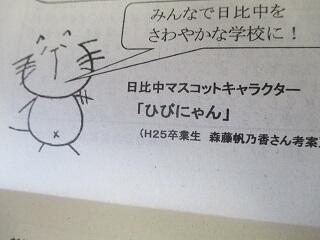 みんなで日比中を
さわやかな学校に！
日比中マスコットキャラクター
「ひびにゃん」
（H25卒業生　森藤帆乃香さん考案）